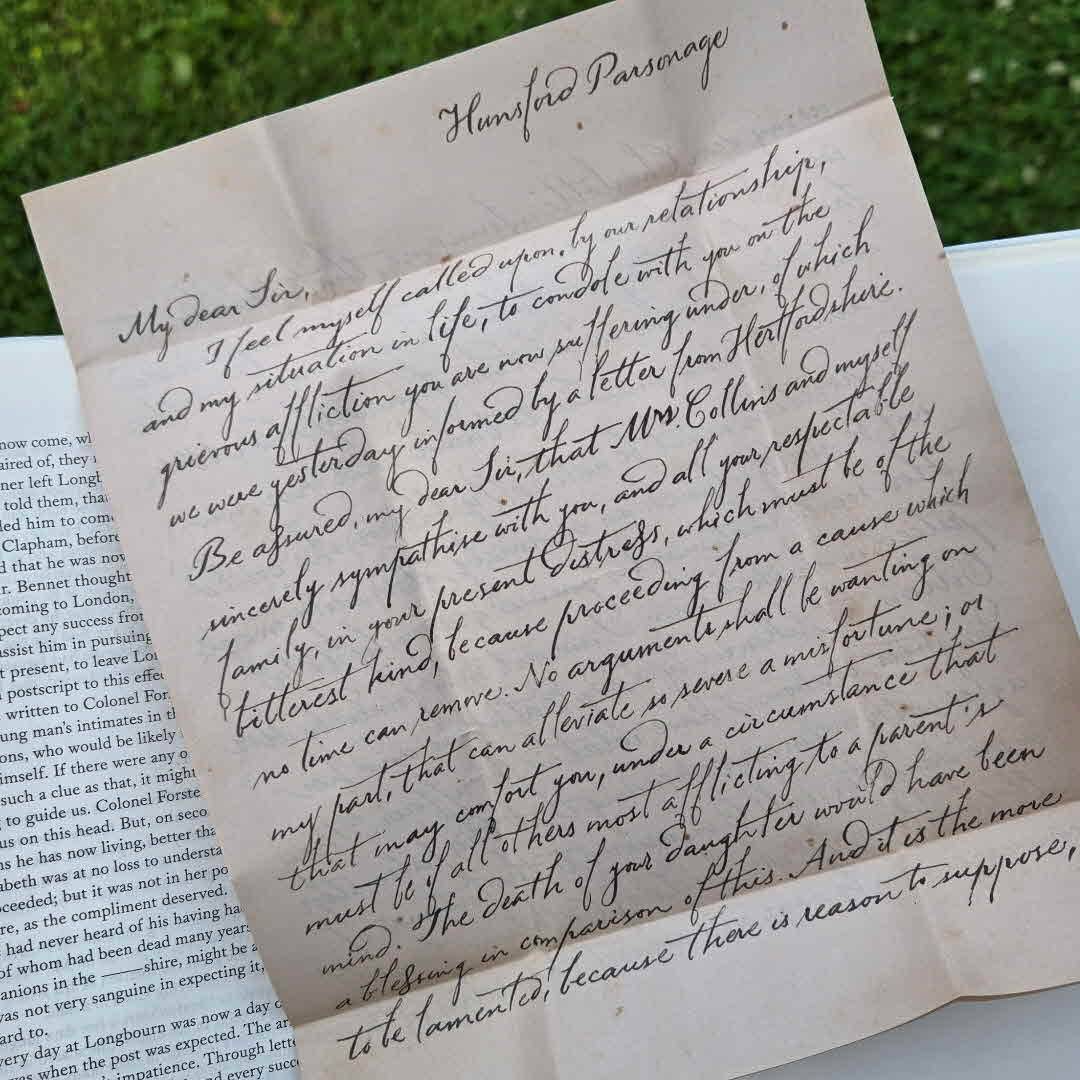 Hunsford Parsonage
My dear Sir,
I feel myself called upon, by our relationship,
and my situation in life, to condole with you on the
grievous affliction you are now suffering under, of which
we were yesterday informed by a letter from Hertfordshire.
Be aſsured, my dear Sir, that Mrs. Collins and myself
sincerely sympathise with you, and all your respectable
family, in your present distreſs, which must be of the
bitterest kind, because proceeding from a cause which
no time can remove. No arguments shall be wanting on
my part, that can alleviate so severe a misfortune; or
that may comfort you, under a circumstance that
must be of all others most afflicting to a parent's
mind. The death of your daughter would have been
a bleſsing in comparison of this. And it is the more
to be lamented, because there is reason to suppose,
now come, wh
aired of, they
ner left Longb
told them, tha
led him to com
Clapham, before
d that he was nov
r. Bennet thought
coming to London,
pect any success fro
assist him in pursuing
t present, to leave Lo
postscript to this effe
written to Colonel For
ung man's intimates in t
ons, who would be likely
imself. If there were any o
such a clue as that, it might
to guide us. Colonel Forste
us on this head. But, on seco
ns he has now living, better tha
abeth was at no loss to understa
oceeded; but it was not in her po
re, as the compliment deserved.
had never heard of his having ha
of whom had been dead many years
anions in the ——shire, might be a
was not very sanguine in expecting it,
ard to.
very day at Longbourn was now a day o
was when the post was expected. The ar
impatience. Through lette
nd every succ